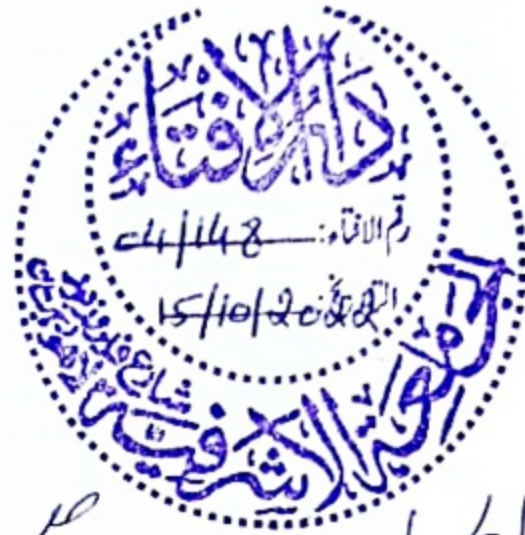 دار الإفتاء
رقم الافتاء: 04/148
التاريخ: 15/10/2022
الجامعة الاشرفية
شارع فیروزپور لاهور باکستان